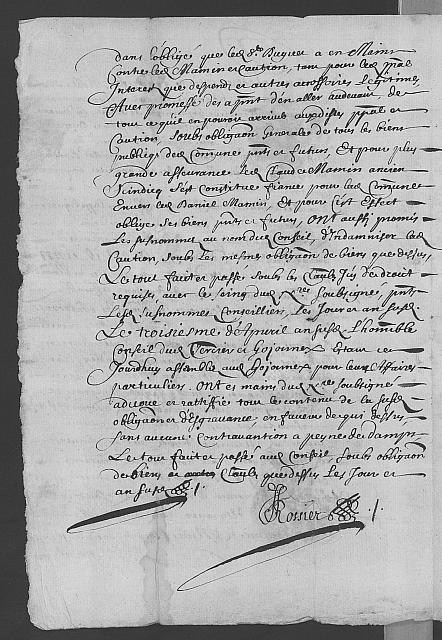 dans l'obligé que led Sr Buquet a en Main
Contre led Mamin et Caution, tant pour led pnal
Interest que despends et autres accessoires Legitimes,
Avec promesse des apnt d'en aller audevant de
tout ce qu'il en pourroit arriver auxdittes pnal et
Caution, Soubs obligaon generale de tous les biens
publiqs de lad Comune pnts et futurs, Et pour plus
grande asseurance Led Claude Mamin ancien
Sindiq s'est Constitué fiance pour lad Comune
Envers led Daniel Mamin, et pour c'est Effect
oblige ses biens pnts et futurs, ont aussi promis
Les susnommés au nom dud Conseil, d'Indamniser lad
Caution, Soubs les mesmes obligaon de biens que dessus,
Le tout fait et passé Soubs les Clauses Jus de droit
requises, avec le seing dud Nre Soubsigné, pnts
Lesd susnommés Conseilliers, Les Jour et an susd
Le troisiesme d'Apvril an susd L'honnble
Conseil dud Gojonnex Estant ce
Jourdhuy assemblé aud Gojonnex pour leurs affaires
particuliers. Ont es mains dud Nre soubsigné
advoué et rattiffié tous le contenu de la susd
obligaon et d'Esgravance, en faveur de qui dessus
sans aucune Contravantion a peyne de damps
Le tout fait et passé aud Conseil, Soubs obligaon
de biens et Clauses que dessus Les Jour et
an susd
Rossier